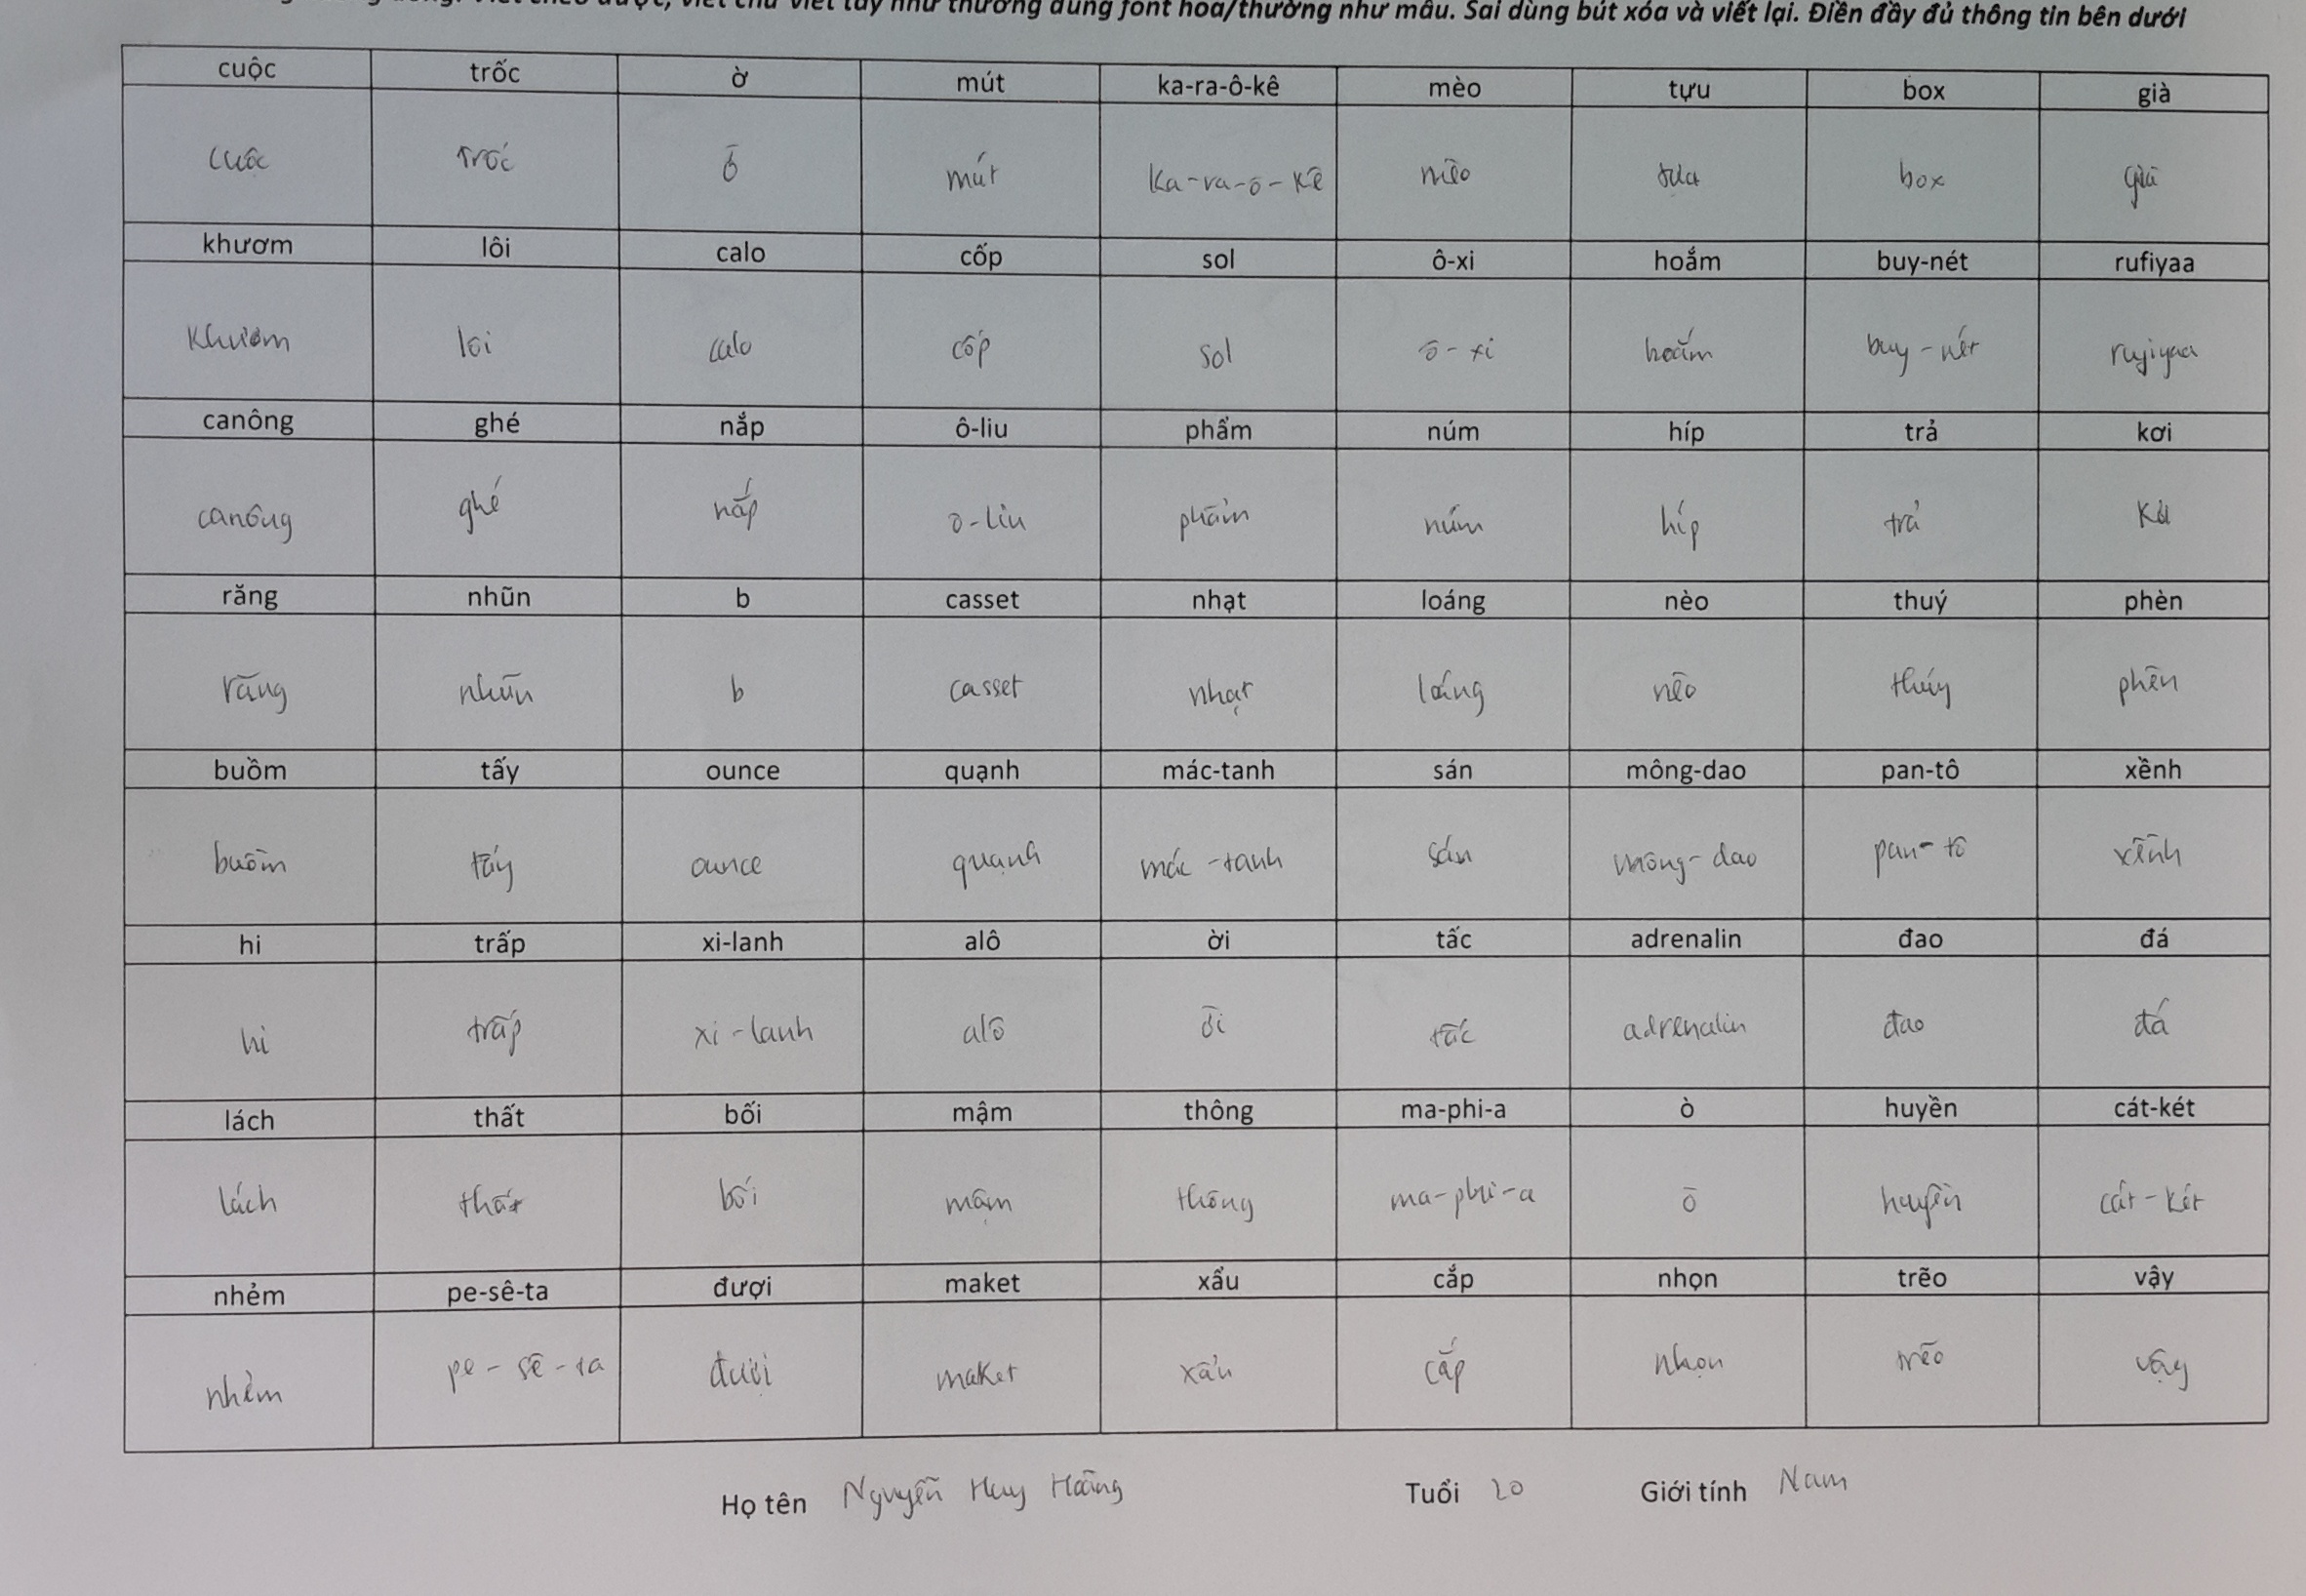 viết chữ viết tay như thường dùng font hoa/thường như mẫu. Sai dùng bút xóa và viết lại. Điền đầy đủ thông tin bên dưới
cuộc trốc ờ mút ka-ra-ô-kê mèo tựu box già
cuộc trốc ờ mút ka-ra-ô-kê mèo tựu box già
khươm lôi calo cốp sol ô-xi hoắm buy-nét rufiyaa
khươm lôi calo cốp sol ô-xi hoắm buy-nét rufiyaa
canông ghé nắp ô-liu phẩm núm híp trả kơi
canông ghé nắp ô-liu phẩm núm híp trả kơi
răng nhũn b casset nhạt loáng nèo thuý phèn
răng nhũn b casset nhạt loáng nèo thuý phèn
buồm tấy ounce quạnh mác-tanh sán mông-dao pan-tô xềnh
buồm tấy ounce quạnh mác-tanh sán mông-dao pan-tô xềnh
hi trấp xi-lanh alô ời tấc adrenalin đao đá
hi trấp xi-lanh alô ời tấc adrenalin đao đá
lách thất bối mậm thông ma-phi-a ò huyền cát-két
lách thất bối mậm thông ma-phi-a ò huyền cát-két
nhẻm pe-sê-ta đượi maket xẩu cắp nhọn trẽo vậy
nhẻm pe-sê-ta đượi maket xẩu cắp nhọn trẽo vậy
Họ tên Nguyễn Huy Hoàng Tuổi 20 Giới tính Nam